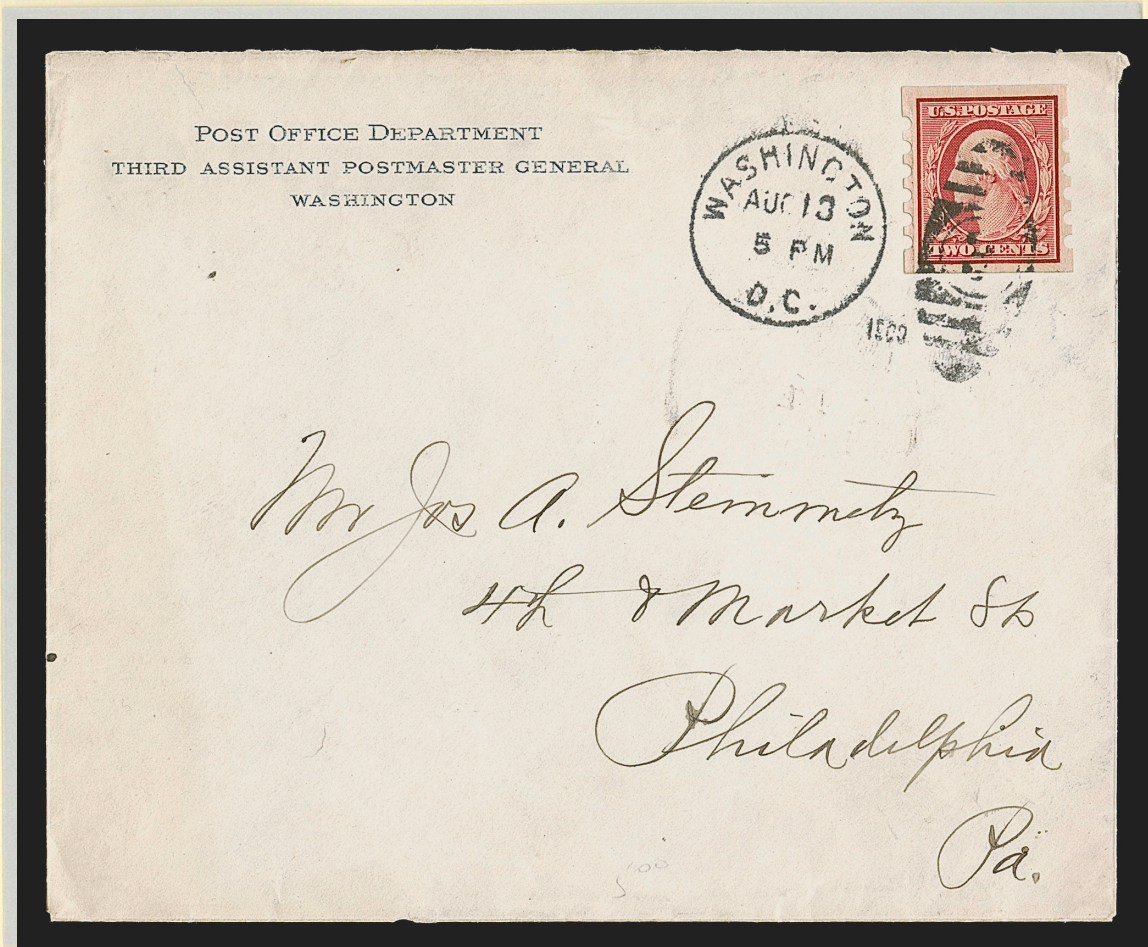 POST OFFICE DEPARTMENT
THIRD ASSISTANT POSTMASTER GENERAL
WASHINGTON
WASHINGTON
AUG 13
5 PM
D.C.
U.S. POSTAGE
TWO CENTS
Mr Jos A. Steinmetz
4th & Market Sts
Philadelphia
Pa.